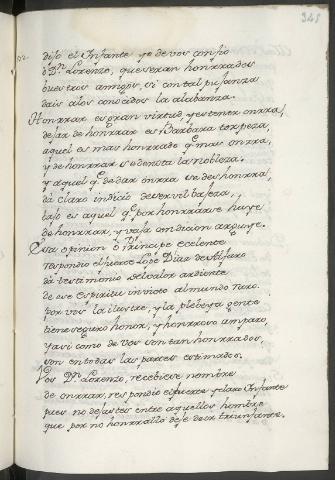 348
32. dijo el Infante yo de vos confio
ô Dn. Lorenzo, que seran honrrados
vuestros amigos, si con tal pujanza
dais a los conoçidos la alabanza.
Honrrar es gran virtud, y es tener onrra,
dejar de honrrar es Barbara torpeza,
aquel es mas honrrado q.e mas onrra,
y de honrrar se denota la nobleza.
y aquel q.e de dar onrra se deshonrra,
dà claro indicio de ser vil bajeza,
bajo es aquel q.e por honrrarse huye
de honrrar, y baja condicion arguye.
Esta opinion ô Principe ecelente
respondio el fuerte Lope Diaz de
dà testimonio del valor ardiente
de ese Espiritu invicto al mundo raro.
por vos la ilustre, y la plebeya gente
tiene seguro honor, y honrroso amparo,
y asi como de vos son tan honrrados,
son en todas las partes estimados.
Vos Dn. Lorenzo, recebis renombre
de onrrar, respondio el fuerte y claro Infante
pues no dejastes entre aquellos hombre
que por no honrrallo deje de ir triunfante.